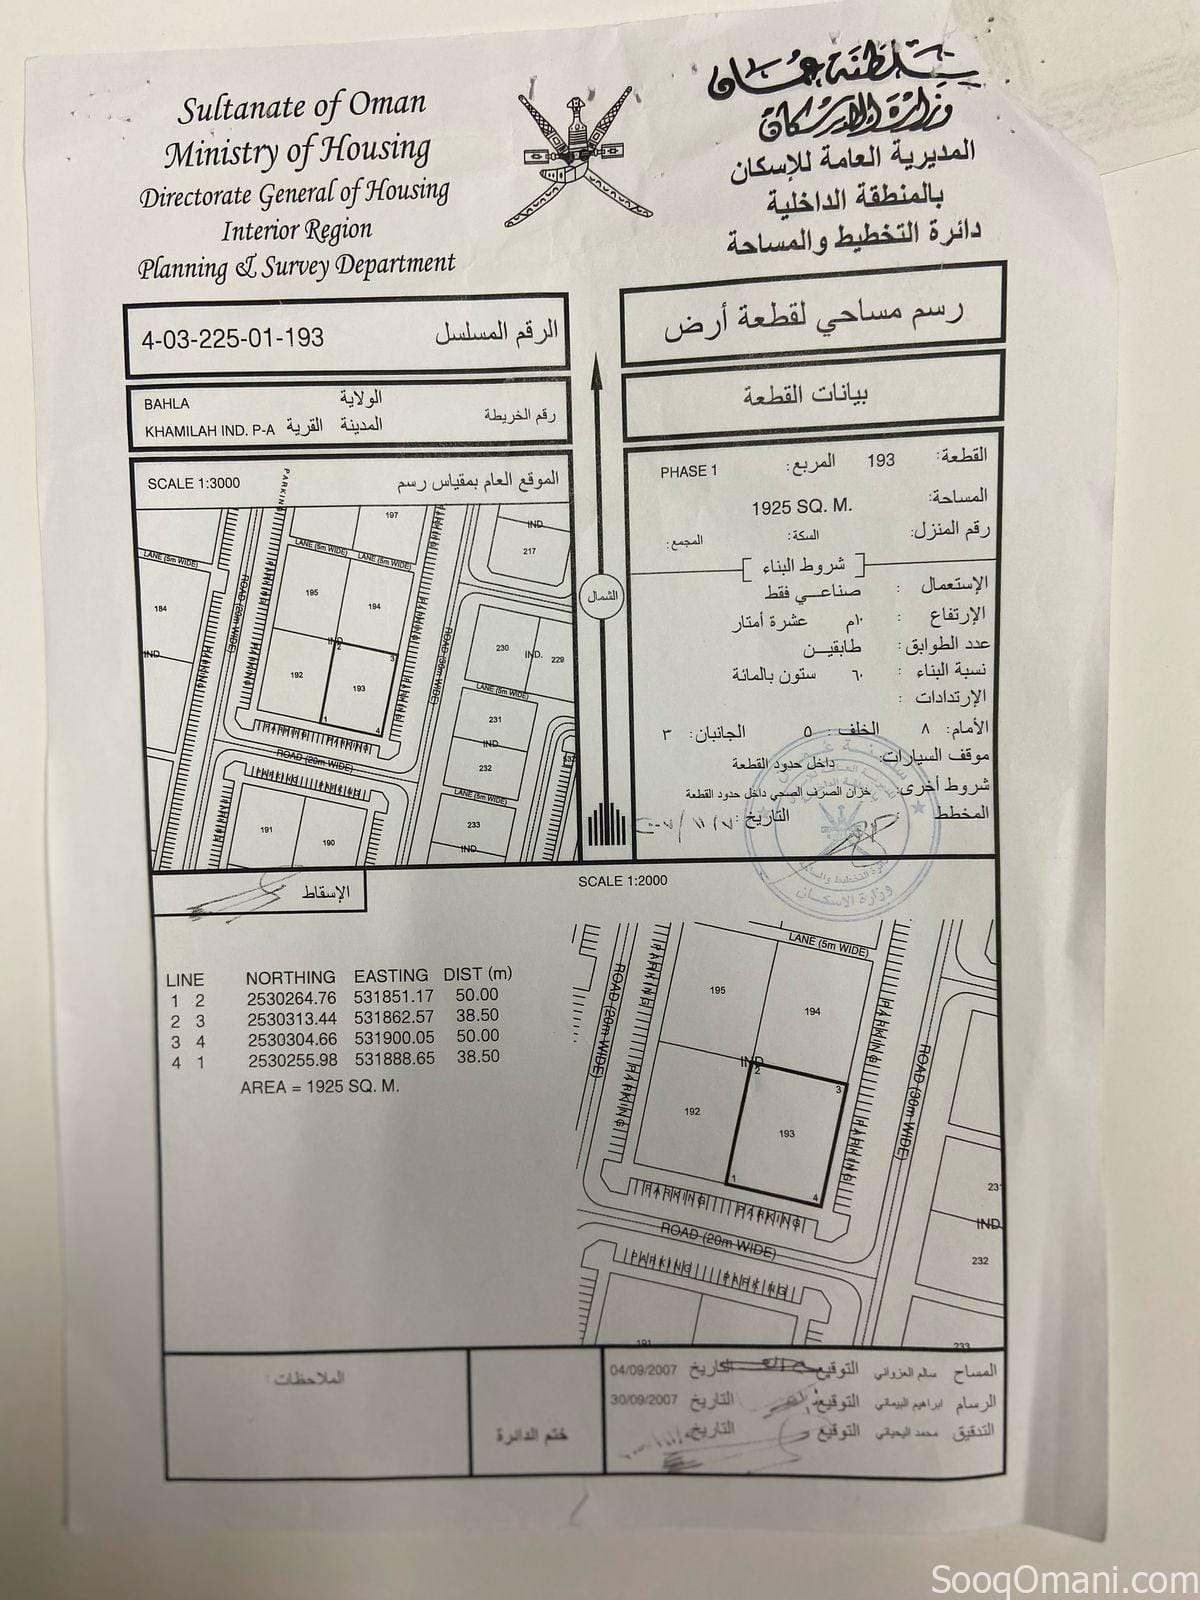 Sultanate of Oman
Ministry of Housing
Directorate General of Housing
Interior Region
Planning & Survey Department
سلطنة عمان
وزارة الإسكان
المديرية العامة للإسكان
بالمنطقة الداخلية
دائرة التخطيط والمساحة
رسم مساحي لقطعة أرض
الرقم المسلسل 4-03-225-01-193
بيانات القطعة
رقم الخريطة
الولاية BAHLA
المدينة القرية KHAMILAH IND. P-A
القطعة: 193 المربع: PHASE 1
المساحة: 1925 SQ. M.
رقم المنزل: السكة: المجمع:
شروط البناء
الإستعمال : صناعـــي فقط
الإرتفاع : ١٠م عشرة أمتار
عدد الطوابق: طابقيـــن
نسبة البناء : ٦٠ ستون بالمائة
الإرتدادات :
الأمام: ٨ الخلف: ٥ الجانبان: ٣
موقف السيارات: داخل حدود القطعة
شروط أخرى: خزان الصرف الصحي داخل حدود القطعة
المخطط : التاريخ:
وزارة الاسكان
الموقع العام بمقياس رسم SCALE 1:3000
PARKING
197
IND
217
LANE (5m WIDE)
LANE (5m WIDE)
LANE (5m WIDE)
ROAD (20m WIDE)
PARKING
PARKING
184
195
194
IND
IND
2
3
192
193
1
4
PARKING
PARKING
ROAD (30m WIDE)
230
IND.
229
LANE (5m WIDE)
231
IND
232
LANE (5m WIDE)
233
IND
PARKING PARKING
ROAD (20m WIDE)
PARKING PARKING
PARKING
191
190
532
الشمال
الإسقاط
SCALE 1:2000
LINE NORTHING EASTING DIST (m)
1 2 2530264.76 531851.17 50.00
2 3 2530313.44 531862.57 38.50
3 4 2530304.66 531900.05 50.00
4 1 2530255.98 531888.65 38.50
AREA = 1925 SQ. M.
LANE (5m WIDE)
PARKING
ROAD (20m WIDE)
PARKING
195
194
IND
2
3
192
193
1
4
PARKING
PARKING
ROAD (30m WIDE)
PARKING PARKING
ROAD (20m WIDE)
PARKING PARKING
231
IND
232
191
233
المساح سالم العزواني التوقيع: التاريخ 04/09/2007
الرسام ابراهيم البيماني التوقيع: التاريخ 30/09/2007
التدقيق محمد اليحيائي التوقيع التاريخ
ختم الدائرة
الملاحظات:
SooqOmani.com